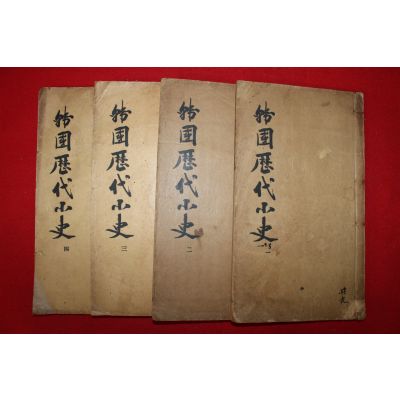 韓國歷代小史 一
韓國歷代小史 二
韓國歷代小史 三
韓國歷代小史 四